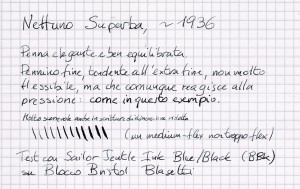 Nettuno Superba, ~ 1936
Penna elegante e ben equilibrata.
Pennino fine, tendente all'extra fine, non molto
flessibile, ma che comunque reagisce alla
pressione: come in questo esempio.
Molto scorrevole anche in scrittura di dimensione ridotta
(un medium-flex non troppo flex)
Test con Sailor Jentle Ink Blue/Black
su Blocco Bristol Blasetti